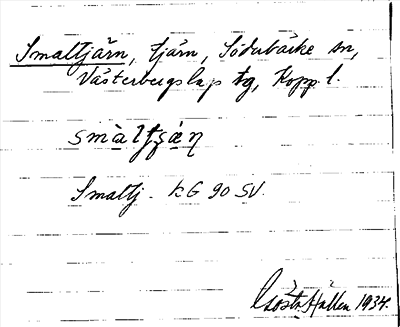 Smaltjärn, tjärn, Söderbärke sn,
Västerbergslags tg, Kopp. l.
smàltʂän
Smaltj. KG 90 SV.
Gösta Hallén 1934.